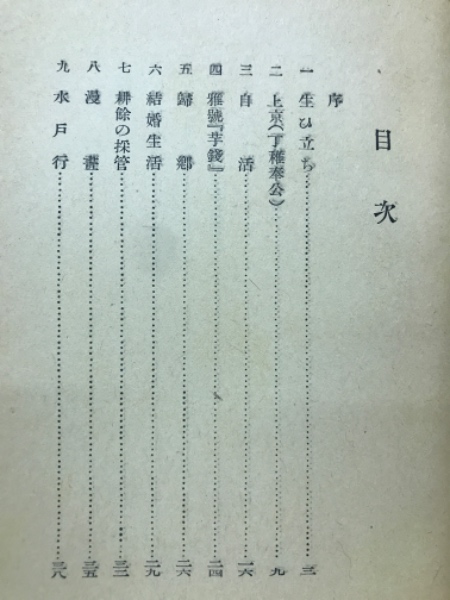 目次
序
一 生ひ立ち……三
二 上京(丁稚奉公)……九
三 自活……一六
四 雅號『芋錢』……二四
五 歸鄕……二六
六 結婚生活……二九
七 耕餘の採管……三三
八 漫畫……三五
九 水戸行……三八